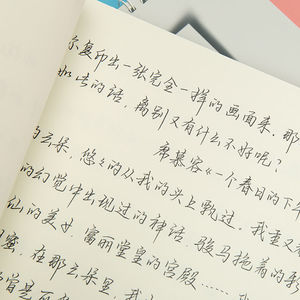 尔复印出一张完全一样的画面来.那
如此的话,离别又有什么不好呢?
席慕容《一个春日的下午
的云朵,悠々的从我的头上飘过.我重又有
的幻觉中出现过的神话.骏马拖着的彩
仙的美女,富丽堂皇的宫殿……我
蜜.在那云朵里,我